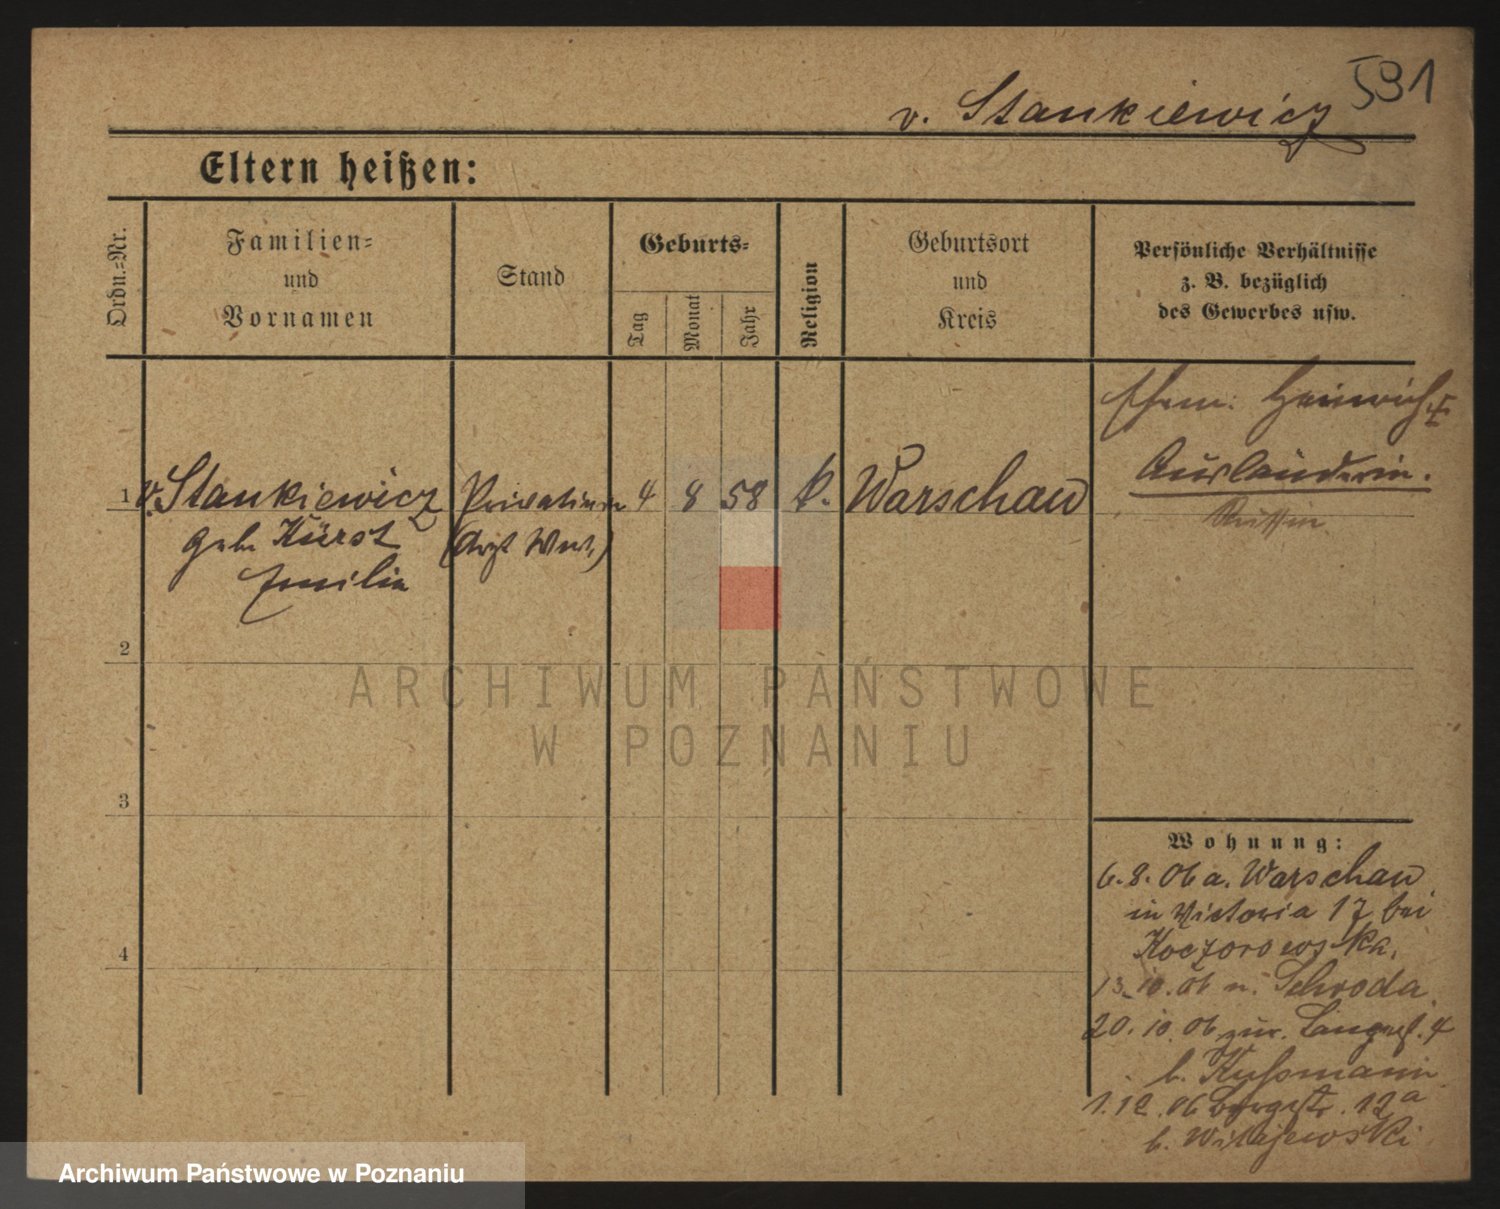 591
v. Stankiewicz
Eltern heißen:
Ordn.-Nr.
Familien-
und
Vornamen
Stand
Geburts-
Tag
Monat
Jahr
Religion
Geburtsort
und
Kreis
Persönliche Verhältnisse
z. B. bezüglich
des Gewerbes usw.
Ehem: Heinrich
Ausländerin.
Russin
1 v. Stankiewicz Privatiere 4 8 58 k. Warschau
geb. Kürst (Arzt Wwe.)
Emilie
2
3
4
ARCHIWUM PAŃSTWOWE
W POZNANIU
Wohnung:
6. 8. 06 a. Warschau
in Victoria 17 bei
Koczorowska.
13. 10. 06 n. Schroda
20. 10. 06 zur. Langestr. 4
b. Kussmann
1. 12. 06 Bergstr. 12a
b. Witajewski
Archiwum Państwowe w Poznaniu